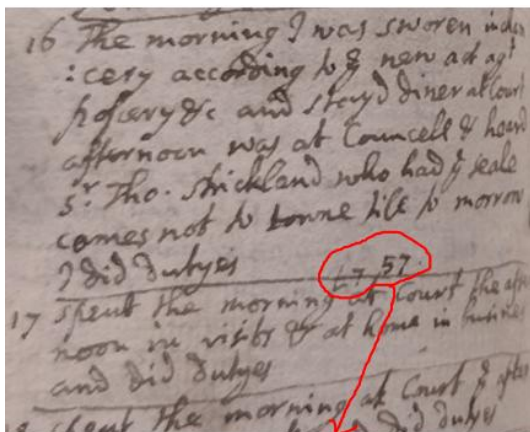 16 The morning I was sworen in chan
: cery according to ye new act agt
popery &c and stayd diner at Court
afternoon was at Councell & heard
Sr. Tho. Strickland who had ye seale
comes not to towne till to morrow
I did dutyes 57
17 spent the morning at Court the after
noon in visits & at home in busines
and did dutyes
spent the morning at Court & after
did dutyes